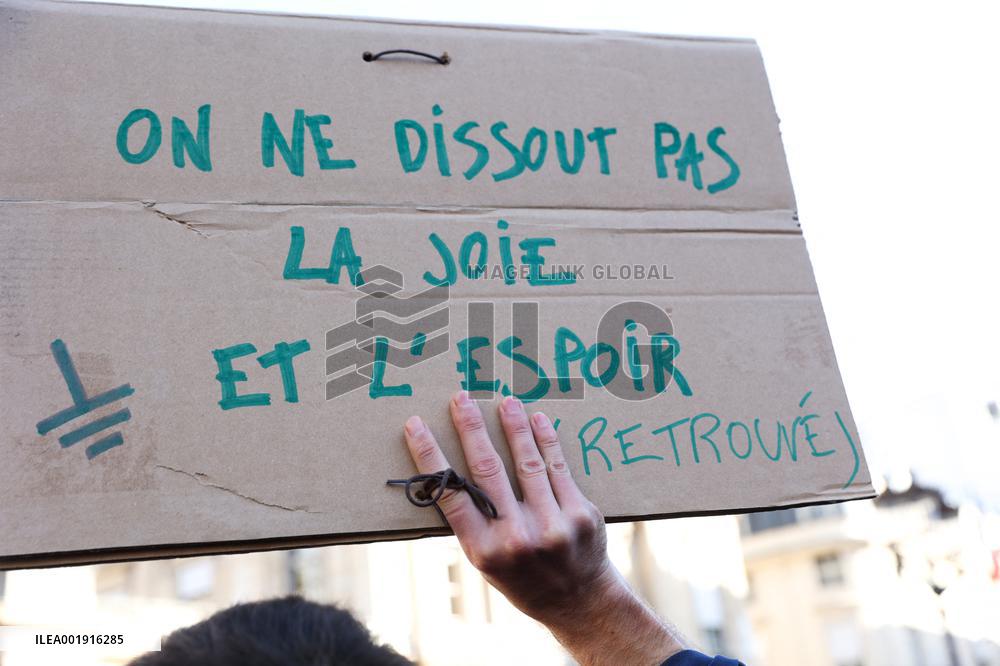 ON NE DISSOUT PAS
LA JOIE
IMAGELINK GLOBAL
ILG
ET L'ESPOIR
(RETROUVÉ)
ILEA001916285